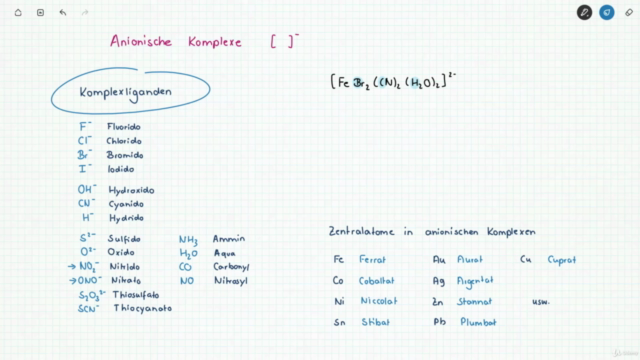 Anionische Komplexe [ ]⁻
Komplexliganden
[Fe Br₂ (CN)₂ (H₂O)₂]²⁻
F⁻ Fluorido
Cl⁻ Chlorido
Br⁻ Bromido
I⁻ Iodido
OH⁻ Hydroxido
CN⁻ Cyanido
H⁻ Hydrido
S²⁻ Sulfido
O²⁻ Oxido
→ NO₂⁻ Nitrido
→ ONO⁻ Nitrato
S₂O₃²⁻ Thiosulfato
SCN⁻ Thiocyanato
NH₃ Ammin
H₂O Aqua
CO Carbonyl
NO Nitrosyl
Zentralatome in anionischen Komplexen
Fe Ferrat Au Aurat Cu Cuprat
Co Cobaltat Ag Argentat
Ni Niccolat Zn Stannat usw.
Sn Stibat Pb Plumbat